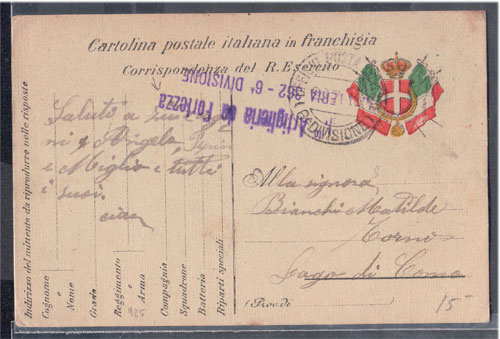 Cartolina postale italiana in franchigia
Corrispondenza del R. Esercito
Artiglieria da Fortezza
262 - 6ª DIVISIONE
UFFICIO POSTA
DIVISIONE
Saluto a
ni e Angelo
e Miglio e tutti
i suoi.
ciao
Alla signora
Bianchi Matilde
Torno
Lago di Como
(Prov. di
15-
Indirizzo del mittente da riprodurre nelle risposte
Cognome
e
Nome
Grado
Reggimento
e
Arma
Compagnia
Squadrone
Batteria
Riparti speciali
925